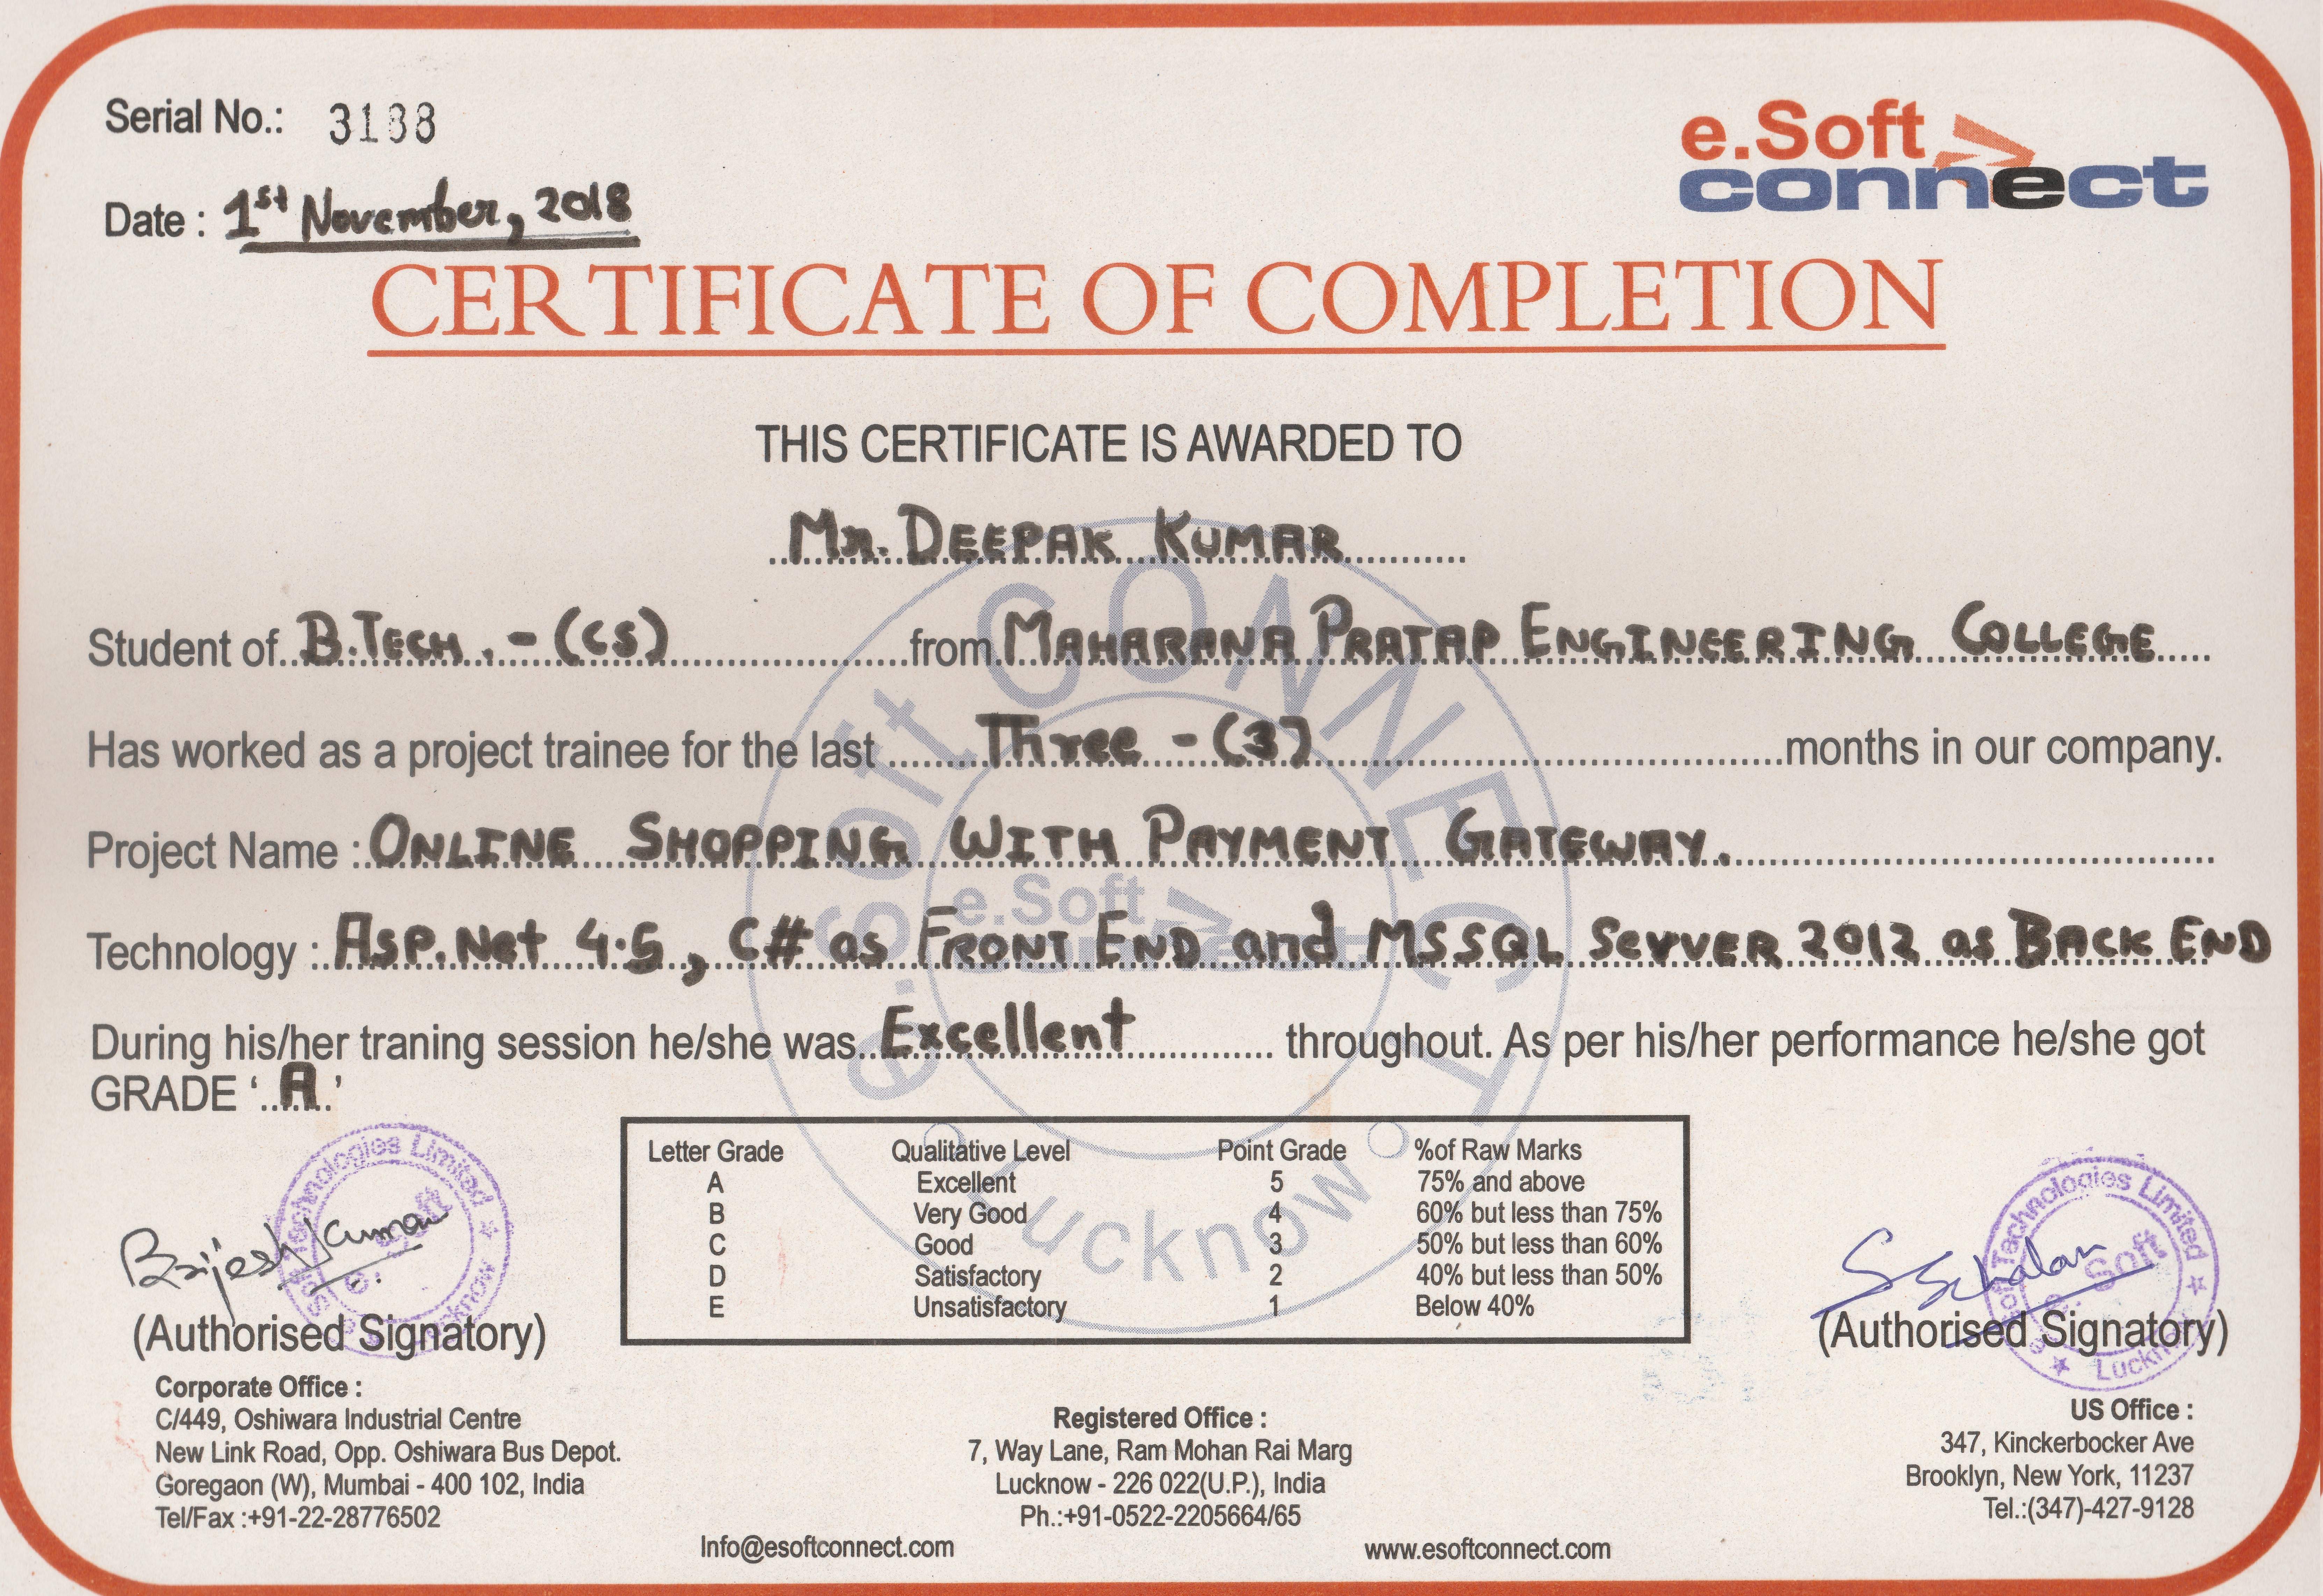 Serial No.: 3188
e.Soft
connect
Date : 1st November, 2018
CERTIFICATE OF COMPLETION
THIS CERTIFICATE IS AWARDED TO
Mr. DEEPAK KUMAR
Student of B.TECH. - (CS) from MAHARANA PRATAP ENGINEERING COLLEGE
Has worked as a project trainee for the last Three - (3) months in our company.
Project Name : ONLINE SHOPPING WITH PAYMENT GATEWAY.
Technology : ASP.Net 4.5, C# as FRONT END and MSSQL Server 2012 as BACK END
During his/her traning session he/she was Excellent throughout. As per his/her performance he/she got
GRADE 'A'
Letter Grade Qualitative Level Point Grade %of Raw Marks
A Excellent 5 75% and above
B Very Good 4 60% but less than 75%
C Good 3 50% but less than 60%
D Satisfactory 2 40% but less than 50%
E Unsatisfactory 1 Below 40%
e.Soft CONNECT
Lucknow
e.Soft
Brijesh Kumar
(Authorised Signatory)
e.Soft Technologies Limited
Lucknow
e.Soft
(Authorised Signatory)
e.Soft Technologies Limited
Lucknow
e.Soft
Corporate Office :
C/449, Oshiwara Industrial Centre
New Link Road, Opp. Oshiwara Bus Depot.
Goregaon (W), Mumbai - 400 102, India
Tel/Fax :+91-22-28776502
Registered Office :
7, Way Lane, Ram Mohan Rai Marg
Lucknow - 226 022(U.P.), India
Ph.:+91-0522-2205664/65
US Office :
347, Kinckerbocker Ave
Brooklyn, New York, 11237
Tel.:(347)-427-9128
Info@esoftconnect.com www.esoftconnect.com